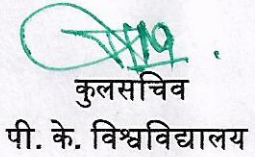 कुलसचिव
पी. के. विश्वविद्यालय